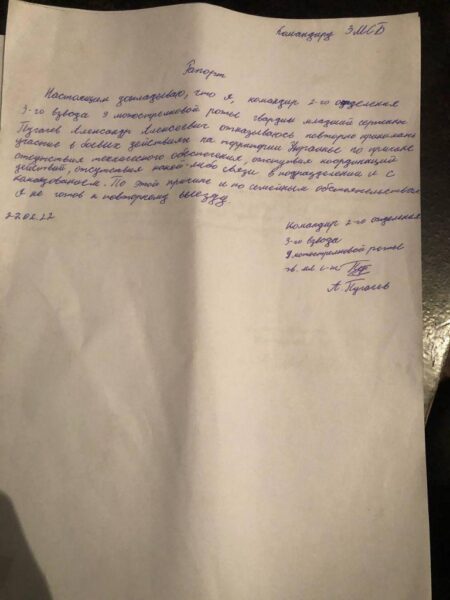 Командиру 3МСБ
Рапорт
Настоящим докладываю, что я, командир 2-го отделения
3-го взвода 9 мотострелковой роты гвардии младший сержант
Пугачев Александр Алексеевич отказываюсь повторно принимать
участие в боевых действиях на территории Украины по причине
отсутствия технического обеспечения, отсутствия координаций
действий, отсутствия какой-либо связи в подразделении и с
командованием. По этой причине и по семейным обстоятельствам
я не готов к повторному выезду
22
Командир 2-го отделения
3-го взвода
9 мотострелковой роты
гв. мл с-нт
А. Пугачев